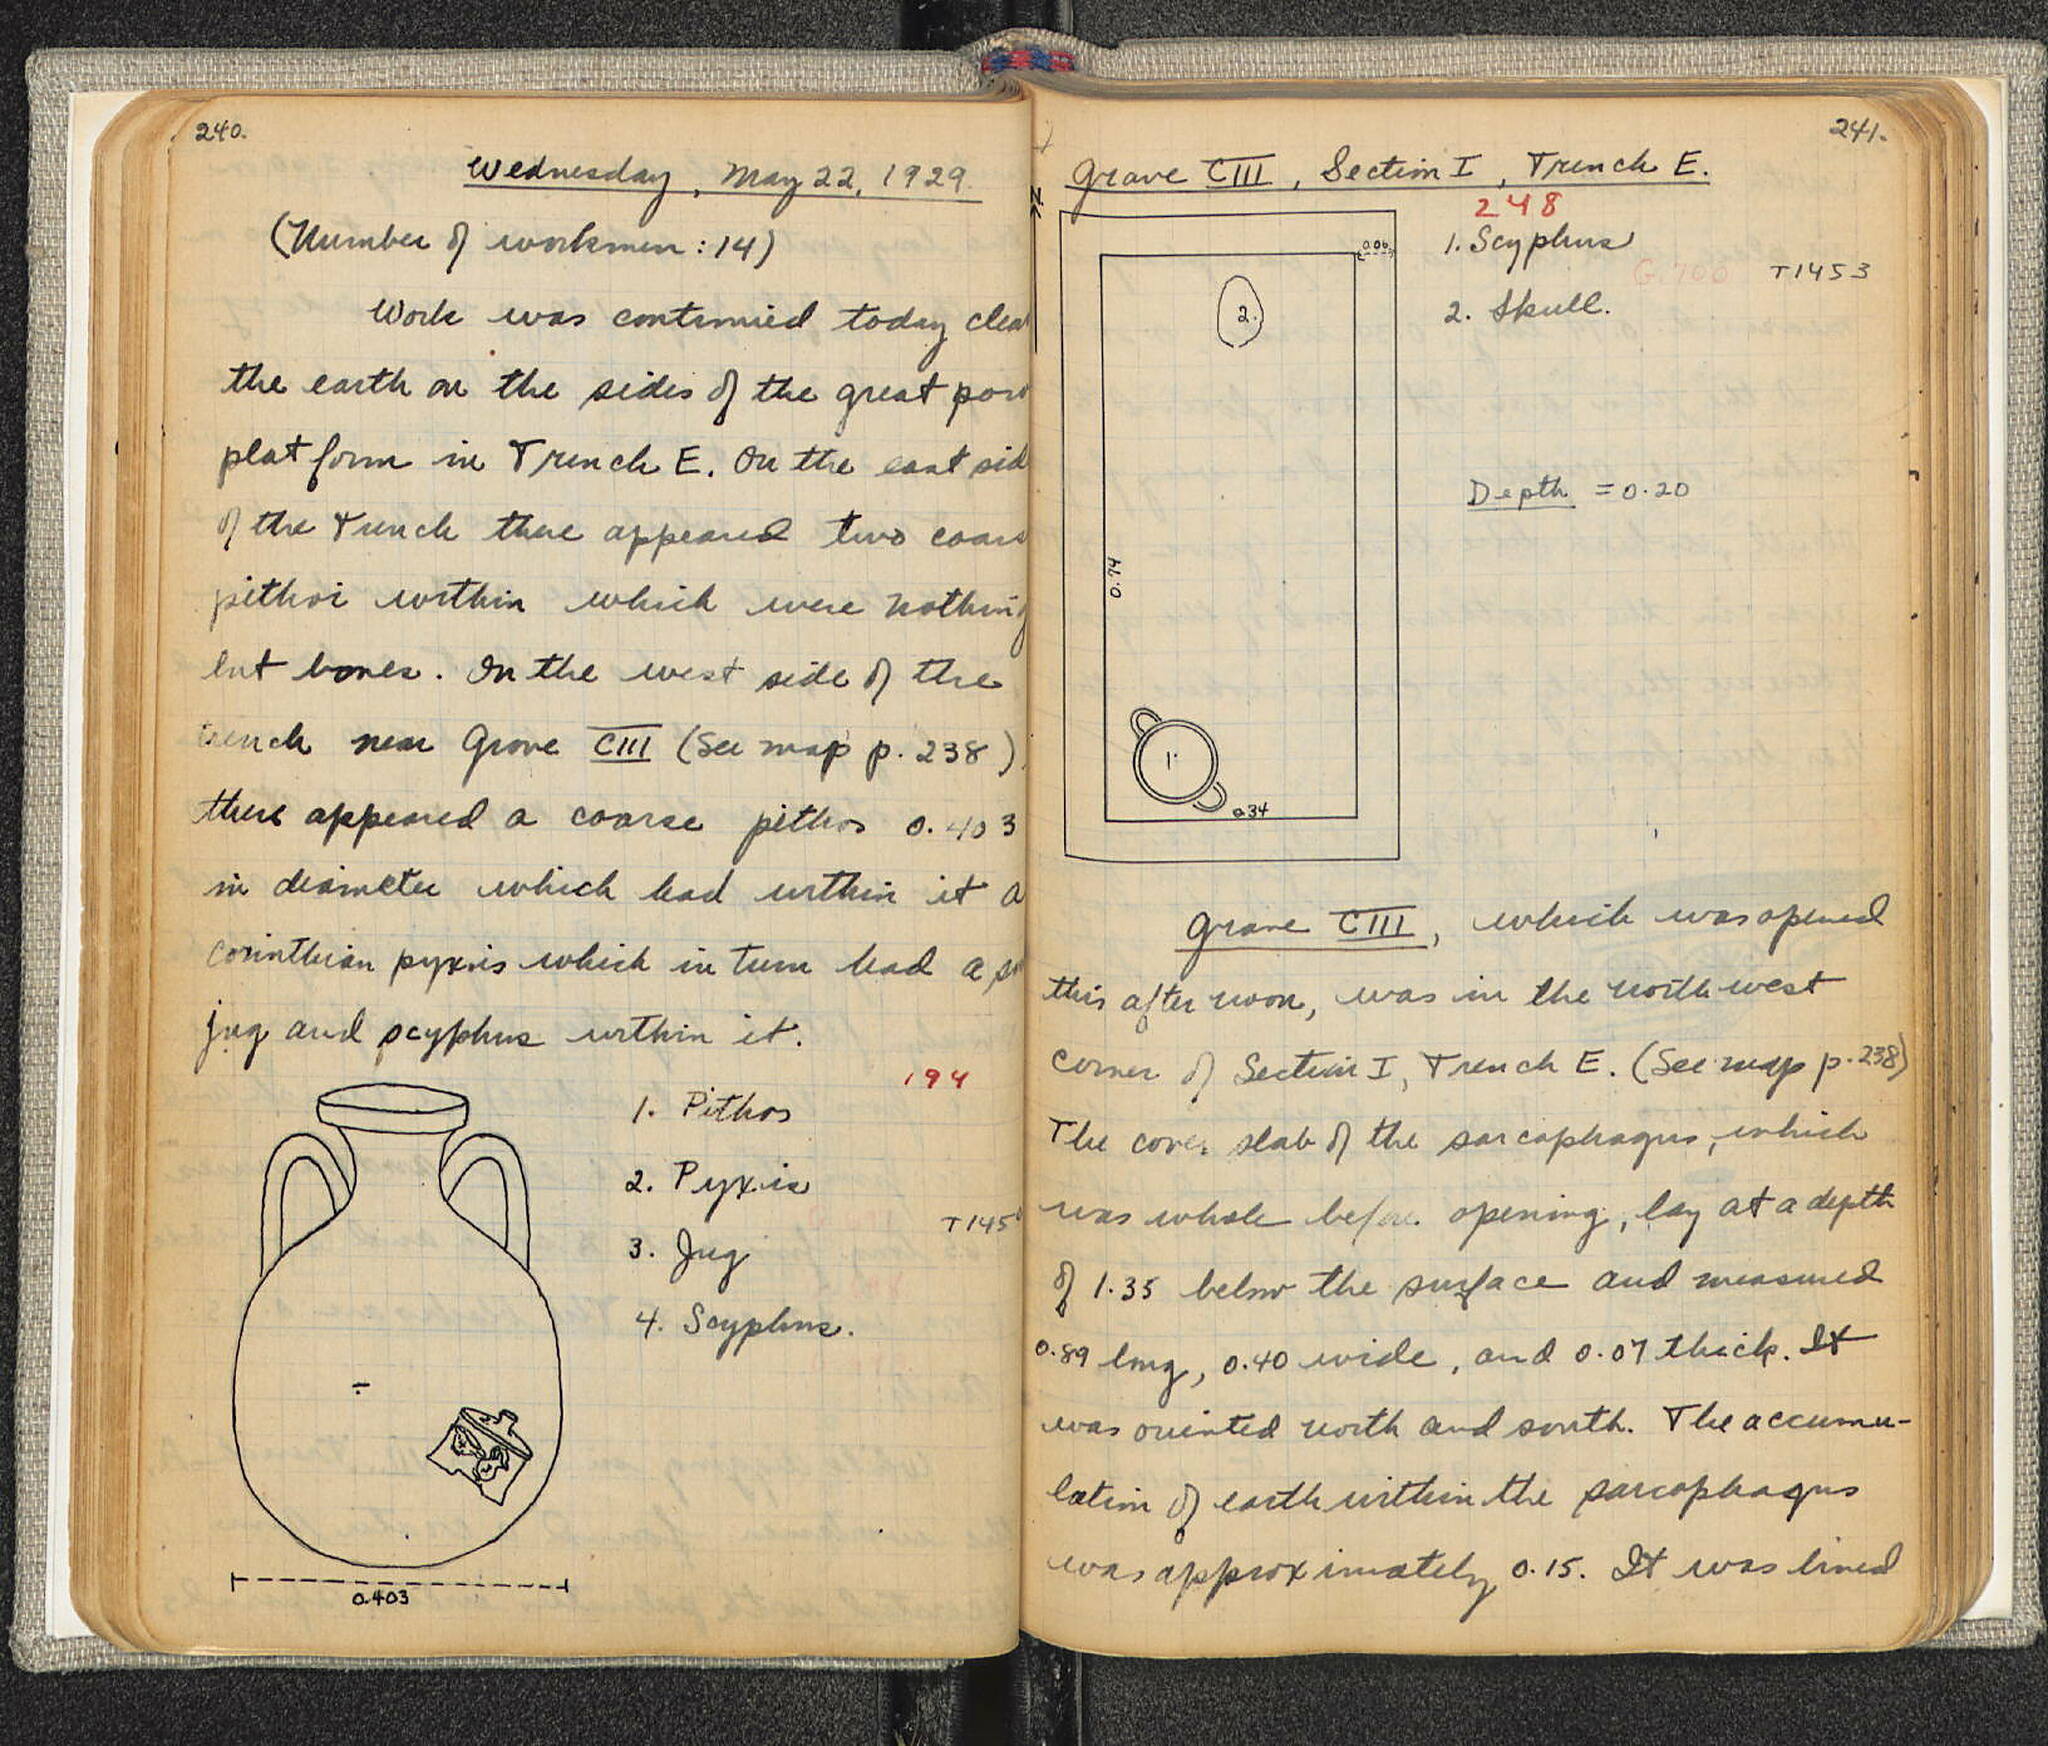 240.
Wednesday, May 22, 1929.
(Number of workmen: 14)
Work was continued today clea
the earth on the sides of the great poro
platform in Trench E. On the east sid
of the Trench there appeared two coars
pithoi within which were nothing
but bones. On the west side of the
trench near Grave CIII (See map p. 238)
there appeared a coarse pithos 0.403
in diameter which had within it a
Corinthian pyxis which in turn had a sm
jug and scyphus within it.
194
1. Pithos
2. Pyxis
T145
3. Jug
4. Scyphus.
0.403
241.
Grave CIII, Section I, Trench E.
N
248
1. Scyphus
G.700 T1453
2. Skull.
0.06
2.
Depth = 0.20
0.74
1.
0.34
Grave CIII, which was opened
this afternoon, was in the northwest
corner of Section I, Trench E. (See map p. 238)
The cover slab of the sarcophagus, which
was whole before opening, lay at a depth
of 1.35 below the surface and measured
0.89 long, 0.40 wide, and 0.07 thick. It
was oriented north and south. The accumu-
lation of earth within the sarcophagus
was approximately 0.15. It was lined